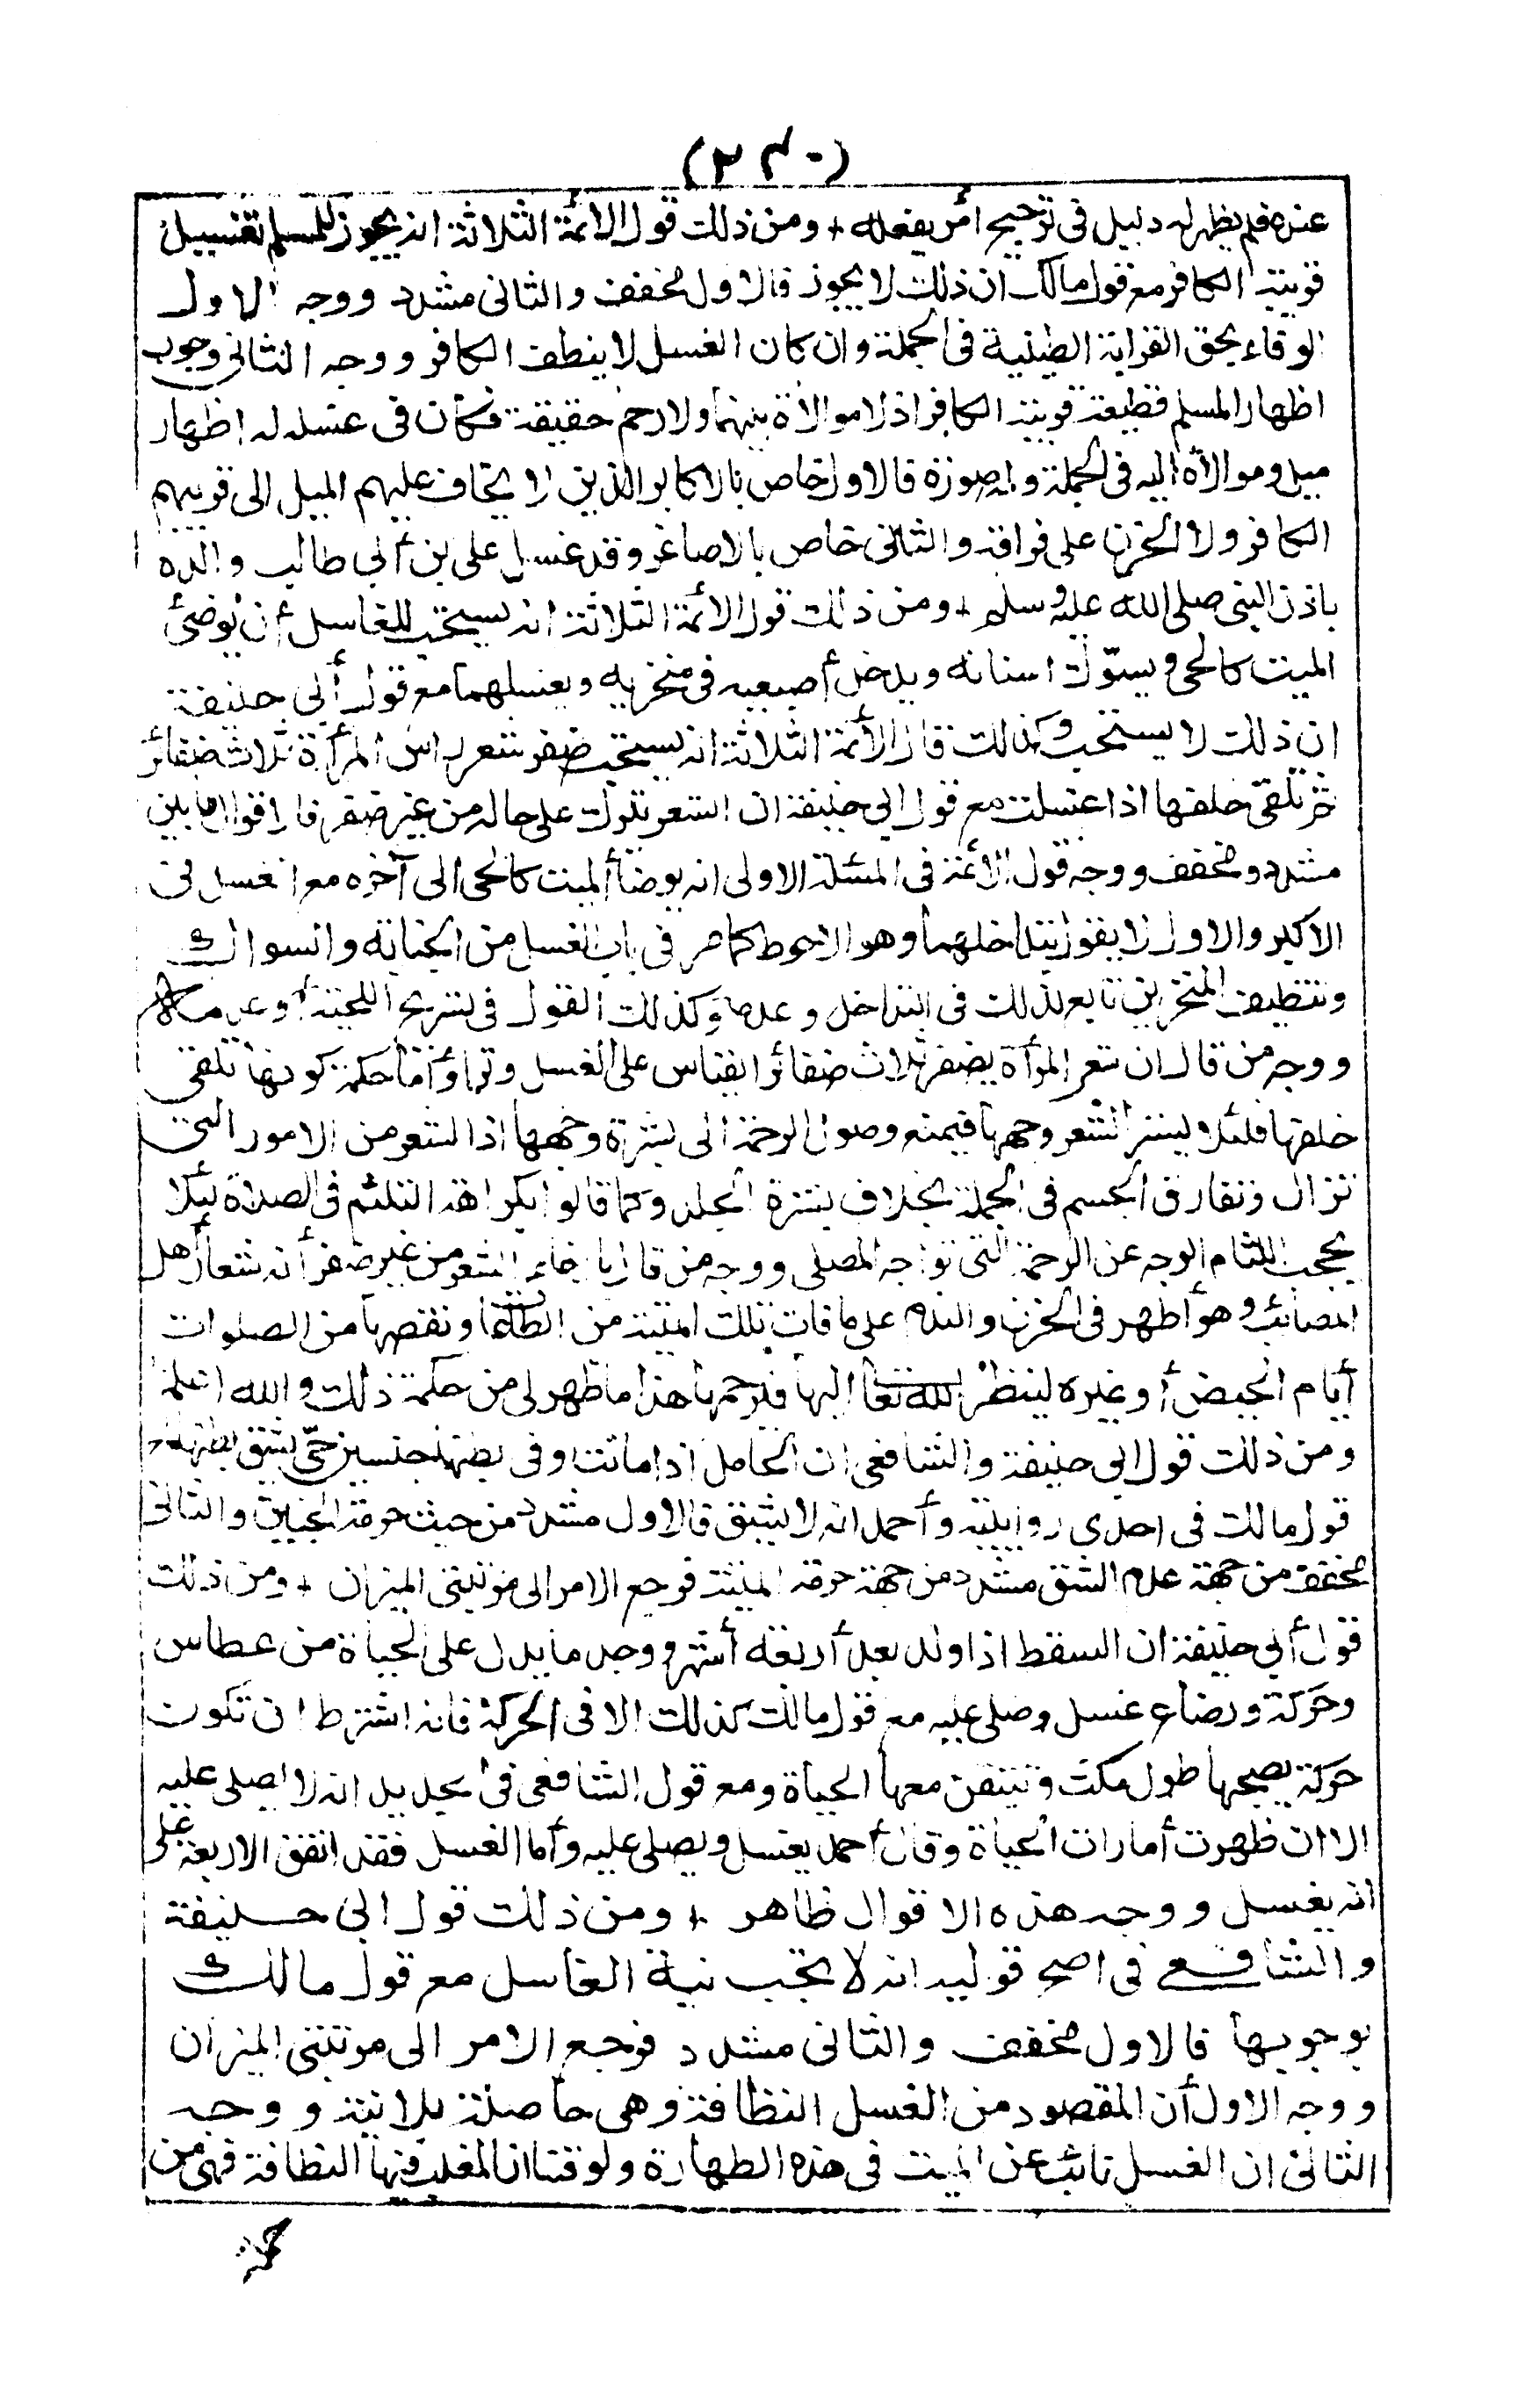 (٢٣٠)
عنده فلم يظهر له دليل في ترجيح أمر يفعله + ومن ذلك قول الائمة الثلاثة انه يجوز للمسلم تغسيل
قريبه الكافر مع قول مالك ان ذلك لا يجوز فالاول مخفف والثاني مشدد ووجه الاول
الوفاء بحق القرابة الطينية في الجملة وان كان الغسل لا ينظف الكافر ووجه الثاني وجوب
اظهار المسلم قطيعة قريبه الكافر اذ لا موالاة بينهما ولا رحم حقيقة فكان في غسله له اظهار
ميل وموالاة اليه في الجملة ولو صورة فالاول خاص بالاكابر الذين لا يخاف عليهم الميل الى قريبهم
الكافر ولا الحزن على فراقه والثاني خاص بالاصاغر وقد غسل علي بن أبي طالب والده
باذن النبي صلى الله عليه وسلم + ومن ذلك قول الائمة الثلاثة انه يستحب للغاسل أن يوضئ
الميت كالحي ويسوّك اسنانه ويدخل أصبعيه في منخريه ويغسلهما مع قول أبي حنيفة
ان ذلك لا يستحب وكذلك قال الأئمة الثلاثة انه يستحب ضفر شعر راس المرأة ثلاث ضفائر
ثم تلقى خلفها اذا غسلت مع قول ابي حنيفة ان الشعر يترك على حاله من غير ضفر فالاقوال ما بين
مشدد ومخفف ووجه قول الائمة في المسئلة الاولى انه يوضأ الميت كالحي الى آخره مع الغسل في
الاكبر والاول لا يقول بتداخلهما وهو الاحوط كما مر في باب الغسل من الجنابة والسواك
وتنظيف المنخرين تابع لذلك في التداخل وعدمه وكذلك القول في تسريح اللحية وعدمه
ووجه من قال ان شعر المرأة يضفر ثلاث ضفائر القياس على الغسل وترا وأما حكمة كونها تلقى
خلفها فلئلا يستر الشعر وجهها فيمنع وصول الرحمة الى بشرة وجهها اذ الشعر من الامور التي
تزال وتفارق الجسم في الجملة بخلاف بشرة الجلد وكما قالوا بكراهة التلثم في الصلاة لئلا
يحجب اللثام الوجه عن الرحمة التي تواجه المصلي ووجه من قال بارخاء الشعر من غير ضفر أنه شعار أهل
المصائب وهو أظهر في الحزن والندم على ما فات تلك الميتة من الطاعات ونقصها من الصلوات
أيام الحيض أو غيره لينظر الله تعا اليها فيرحمها هذا ما ظهر لي من حكمة ذلك والله اعلم
ومن ذلك قول ابي حنيفة والشافعي ان الحامل اذا ماتت وفي بطنها جنين حيّ يشق بطنها مع
قول مالك في احدى روايتيه وأحمد انه لا يشق فالاول مشدد من حيث حرمة الجنين والثاني
مخفف من جهة عدم الشق مشدد من جهة حرمة الميتة فرجع الامر الى مرتبتي الميزان + ومن ذلك
قول أبي حنيفة ان السقط اذا ولد بعد أربعة أشهر ووجد ما يدل على الحياة من عطاس
وحركة ورضاع غسل وصلى عليه مع قول مالك كذلك الا في الحركة فانه اشترط ان تكون
حركة يصحبها طول مكث وتيقن معها الحياة ومع قول الشافعي في الجديد انه لا يصلى عليه
الا ان ظهرت أمارات الحياة وقال أحمد يغسل ويصلى عليه وأما الغسل فقد اتفق الاربعة على
انه يغسل ووجه هذه الاقوال ظاهر + ومن ذلك قول ابي حنيفة
والشافعي في اصح قوليه انه لا تجب نية الغاسل مع قول مالك
بوجوبها فالاول مخفف والثاني مشدد فرجع الامر الى مرتبتي الميزان
ووجه الاول أن المقصود من الغسل النظافة وهي حاصلة بلا نية ووجه
الثاني ان الغسل نائب عن الميت في هذه الطهارة ولو قلنا ان المغلب فيها النظافة فهي من